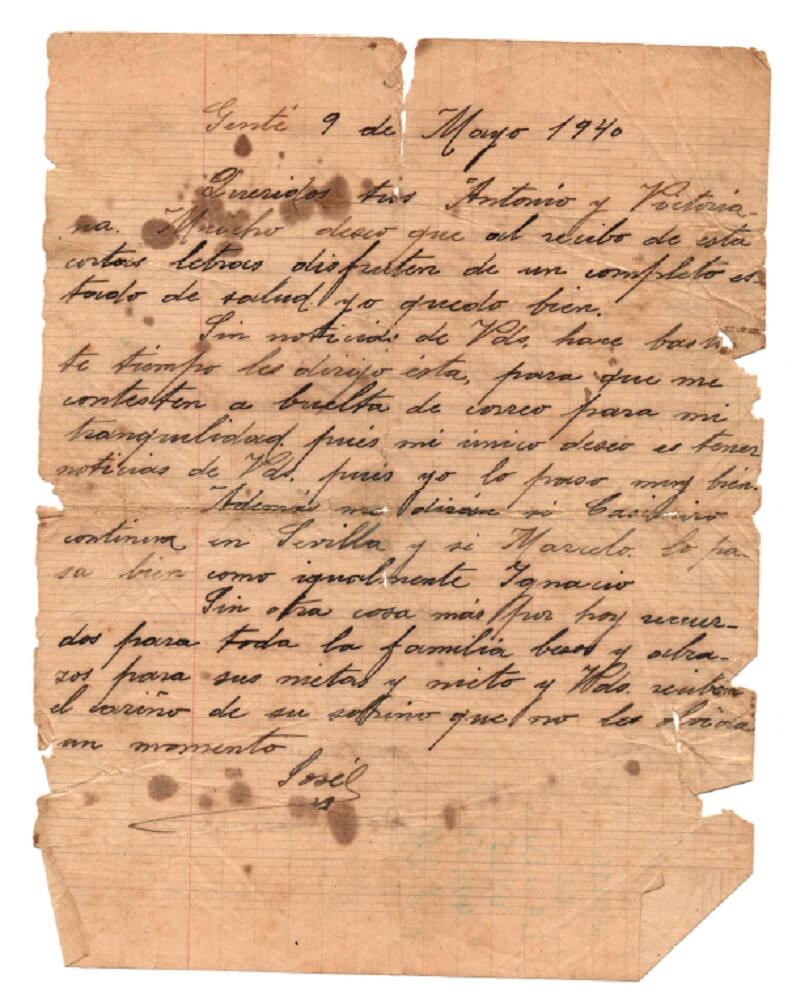 Genté 9 de Mayo 1940
Queridos tios Antonio y Victoria-
na. Mucho deseo que al recibo de esta
cortas letras disfruten de un completo es-
tado de salud yo quedo bien.
Sin noticias de Vds. hace basta
te tiempo les dirijo ésta, para que me
contesten a buelta de correo para mi
tranquilidad, pués mi único deseo es tener
noticias de Vds. pués yo lo paso muy bien.
Además me dirán si Casimiro
continua en Sevilla y si Marcelo lo pa-
sa bien como igualmente Ignacio
Sin otra cosa más por hoy recuer-
dos para toda la familia besos y abra-
zos para sus nietas y nieto y Vds. reciban
el cariño de su sobrino que no les olvida
un momento
José